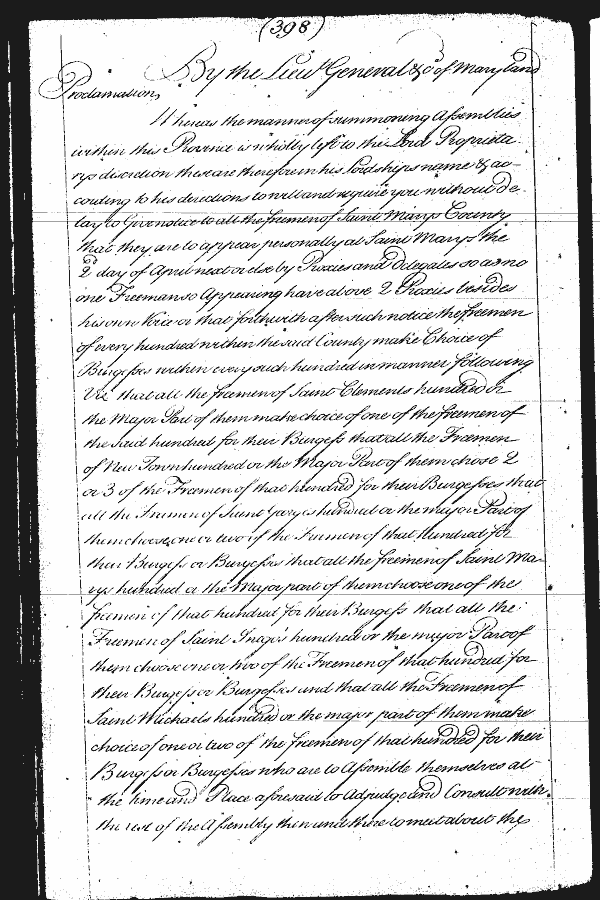 (398)
By the Lieut General &c of Maryland
Proclamation,
Whereas the manner of summoning Assemblies
within this Province is wholly left to the Lord Proprieta
rys discretion these are therefore in his Lordships name & ac-
cording to his directions to will and require you without de-
lay to Give notice to all the freemen of Saint Marys County
that they are to appear personally at Saint Marys the
2d day of April next or else by Proxies and delegates so as no
one Freeman so Appearing have above 2 Proxies besides
his own Voice or that forthwith after such notice the freemen
of every hundred within the said County make Choice of
Burgesses within every such hundred in manner following
Vizt that all the freemen of Saint Clements hundred or
the Major Part of them make choice of one of the freemen of
the said hundred for their Burgess that all the Freemen
of New Town hundred or the Major Part of them chose 2
or 3 of the Freemen of that hundred for their Burgesses that
all the Freemen of Saint Georges hundred or the major Part of
them choose one or two of the Freemen of that Hundred for
their Burgess or Burgesses that all the freemen of Saint Ma-
rys hundred or the Major part of them choose one of the
freemen of that hundred for their Burgess that all the
Freemen of Saint Inagos hundred or the major Part of
them choose one or two of the Freemen of that hundred for
their Burgess or Burgesses and that all the Freemen of
Saint Michaels hundred or the major part of them make
choice of one or two of the freemen of that hundred for their
Burgess or Burgesses who are to Assemble themselves at
the time and Place aforesaid to Adjudge and Consult with
the rest of the Assembly then and there to meet about the